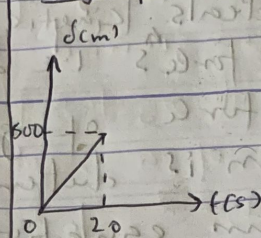 S(m)
600
0 20 t(s)